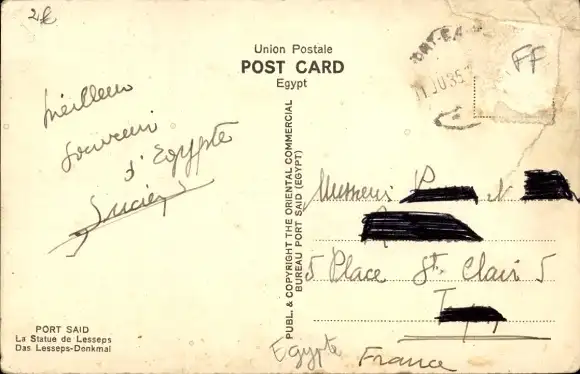 2€
Union Postale
POST CARD
Egypt
PORT-SA
11 JU 35
FF
Meilleur
souvenir
d'Egypte
Lucien
PUBL. & COPYRIGHT THE ORIENTAL COMMERCIAL
BUREAU PORT SAID (EGYPT)
Messieurs P et N
5 Place St. Clair 5
Egypte France
PORT SAID
La Statue de Lesseps
Das Lesseps-Denkmal